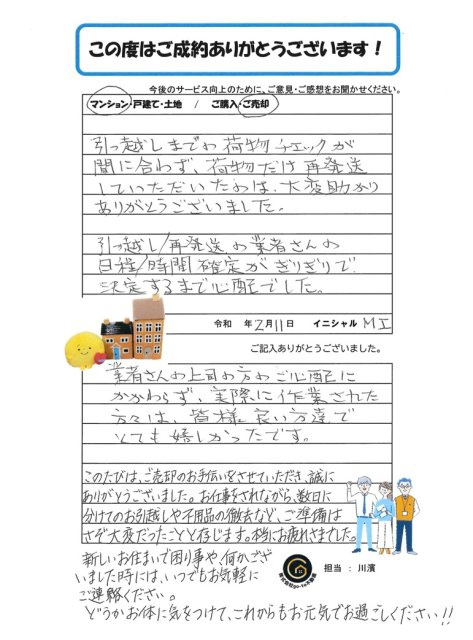 この度はご成約ありがとうございます！
今後のサービス向上のために、ご意見・ご感想をお聞かせください。
マンション・戸建て・土地　/　ご購入・ご売却
引っ越しまでの荷物チェックが
間に合わず、荷物だけ再発送
していただいたのは、大変助かり
ありがとうございました。
引っ越し/再発送の業者さんの
日程/時間確定がぎりぎりで
決定するまで心配でした。
令和　年2月11日　イニシャル　M I
ご記入ありがとうございました。
業者さんの上司の方のご心配に
かかわらず、実際に作業された
方々は、皆様良い方達で
とても嬉しかったです。
このたびは、ご売却のお手伝いをさせていただき、誠に
ありがとうございました。お仕事をされながら、数日に
分けてのお引越しや不用品の撤去など、ご準備は
さぞ大変だったことと存じます。本当にお疲れさまでした。
新しいお住まいで困り事や、何かござ
いました時には、いつでもお気軽に
ご連絡ください。
担当：川濱
どうかお体に気をつけて、これからもお元気でお過ごしください!!